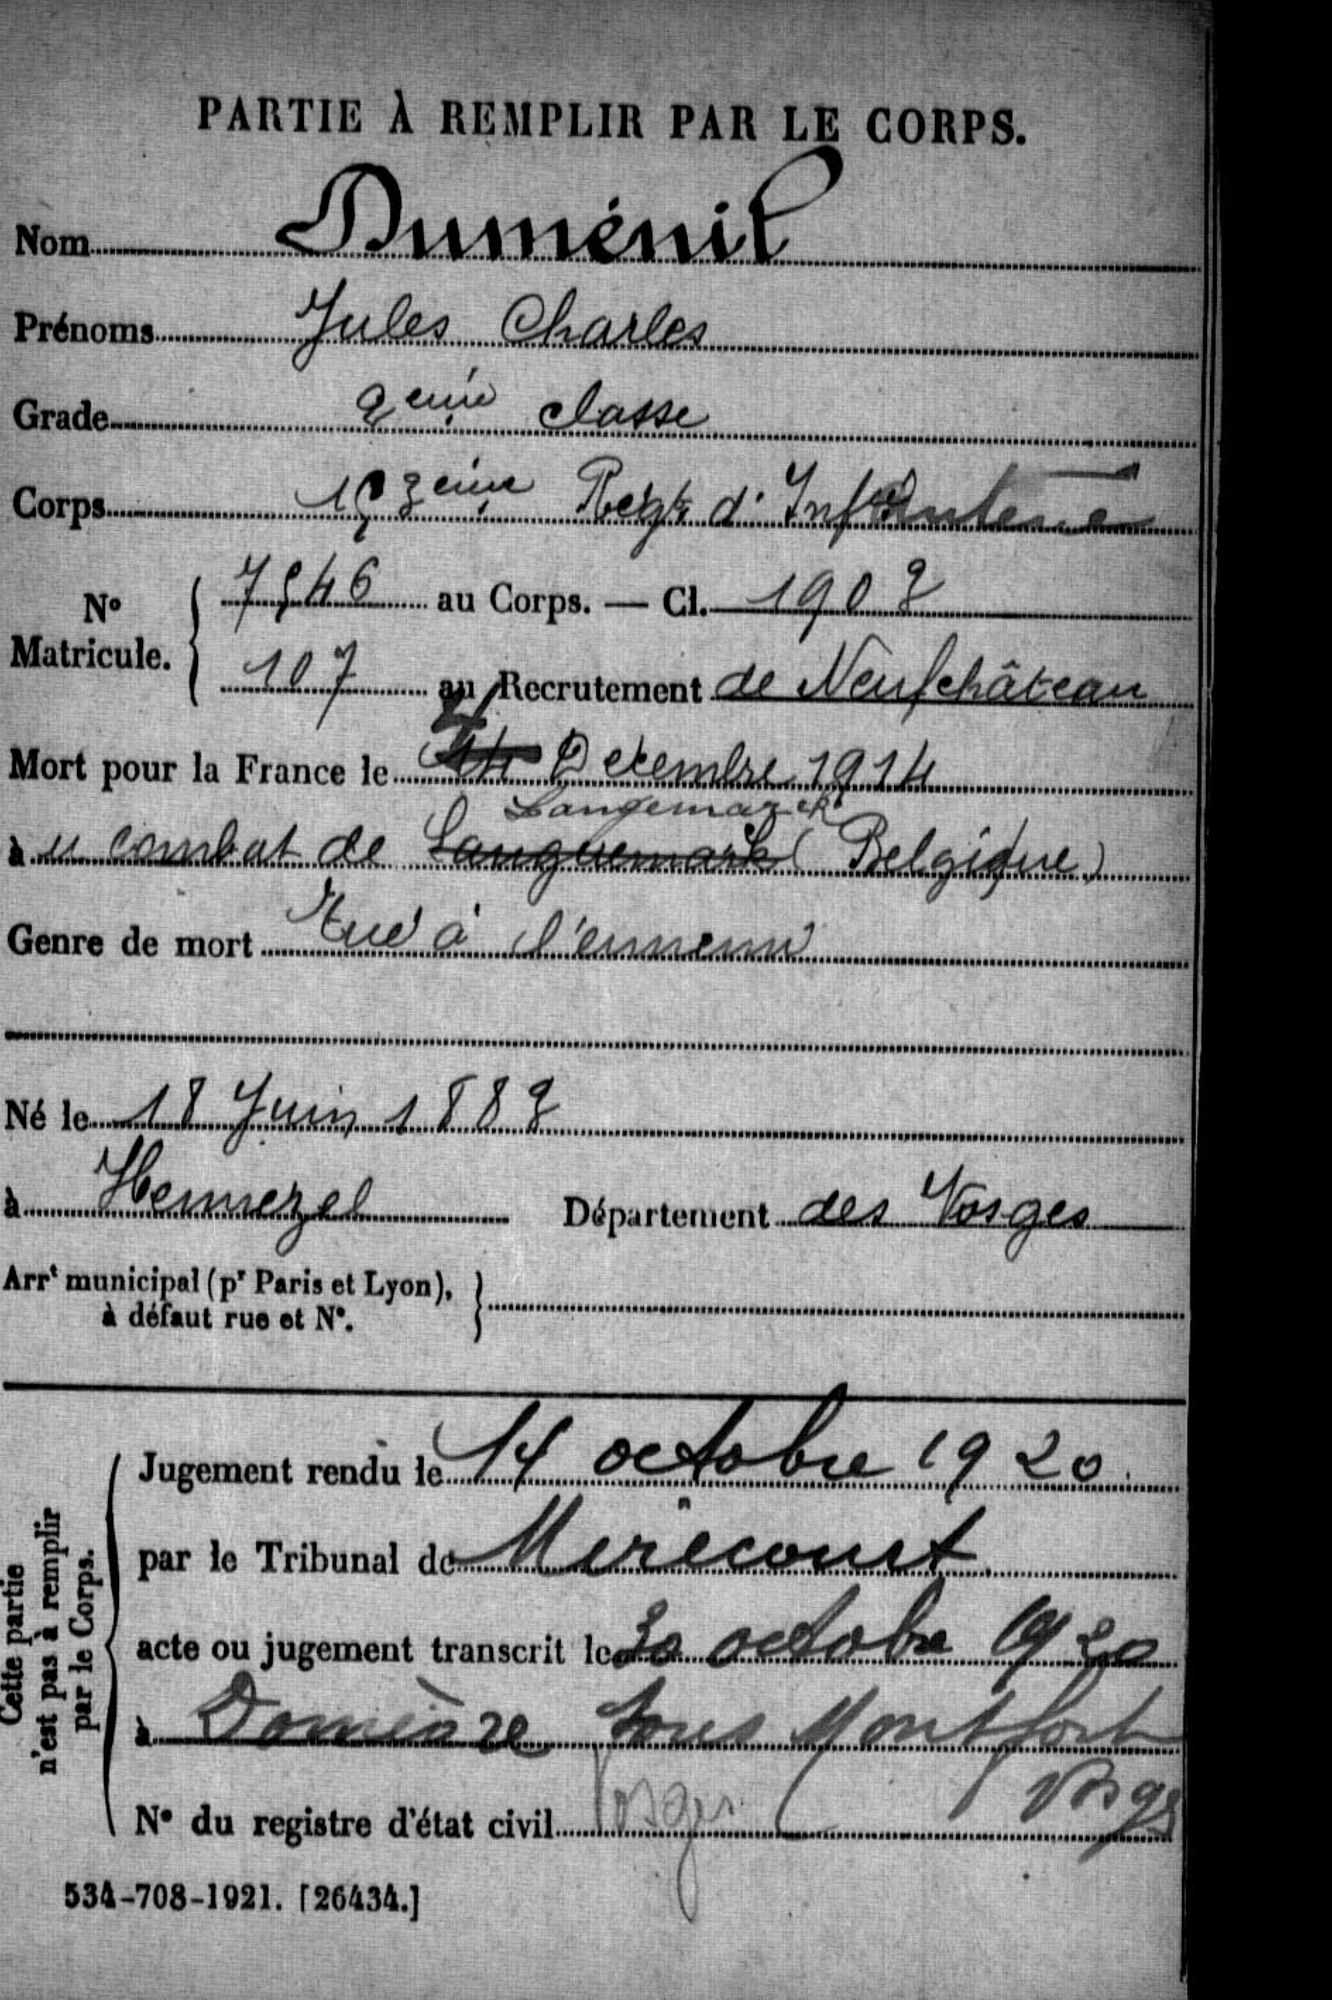 PARTIE À REMPLIR PAR LE CORPS.
Nom Duménil
Prénoms Jules Charles
Grade 2eme classe
Corps 153eme Regt d'Infanterie
No Matricule. { 7546 au Corps. — Cl. 1902
107 au Recrutement de Neufchâteau
Mort pour la France le 14 Decembre 1914
Langemarck
à u combat de Languemark (Belgique)
Genre de mort Tué à l'ennemi
Né le 18 Juin 1882
à Hennezel Département des Vosges
Arrt municipal (pr Paris et Lyon),
à défaut rue et N°.
Cette partie
n'est pas à remplir
par le Corps.
Jugement rendu le 14 octobre 1920.
par le Tribunal de Mirecourt
acte ou jugement transcrit le 30 octobre 1920
à Domèvre sous Montfort
Vosges
N° du registre d'état civil Vosges
534-708-1921. [26434.]